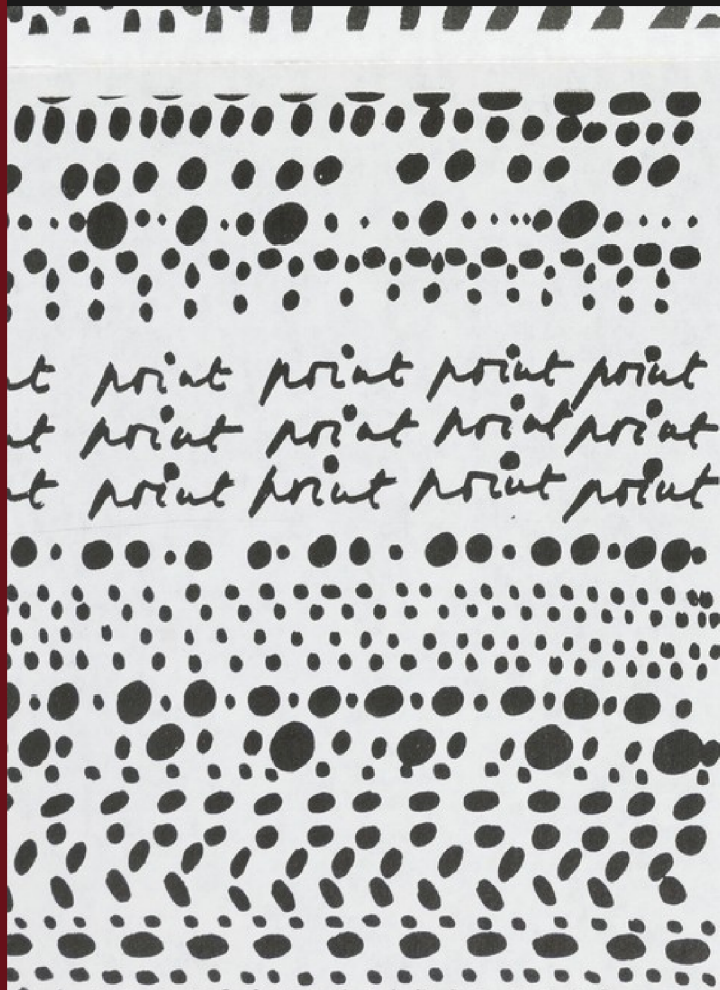 nt point point point point
nt point point point point
nt point point point point